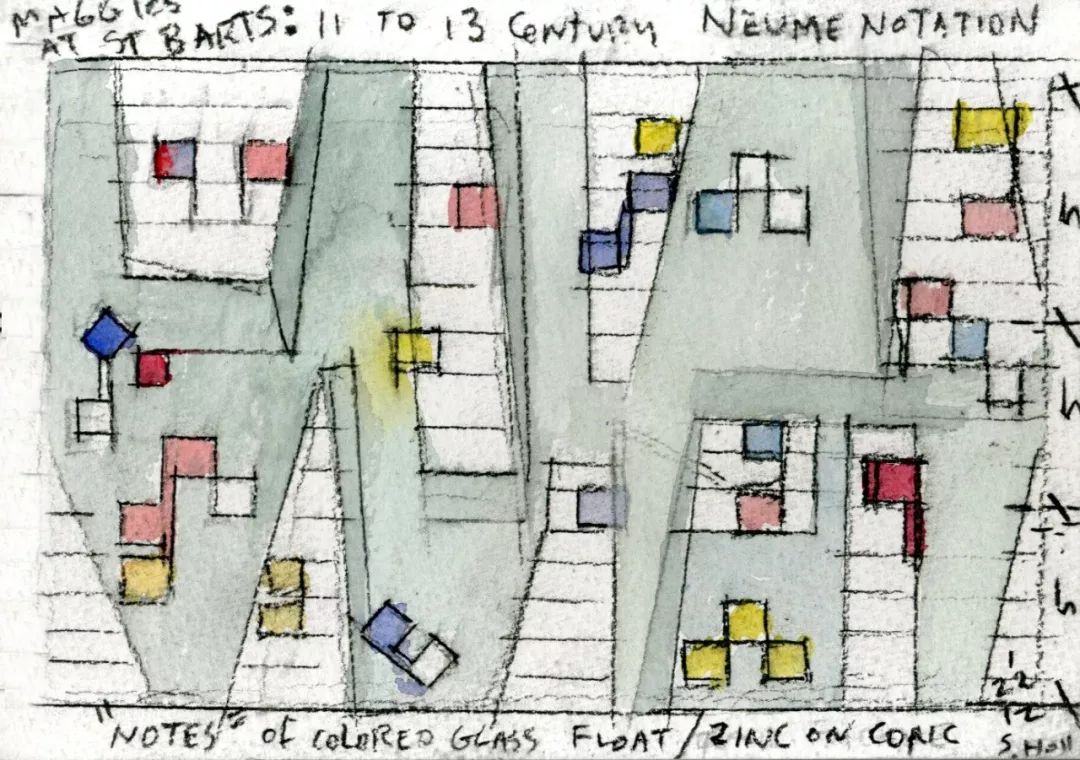 MAGGIES
AT ST BARTS: 11 TO 13 CENTURY NEUME NOTATION
"NOTES" OF COLORED GLASS FLOAT / ZINC ON CONIC
S. Holl